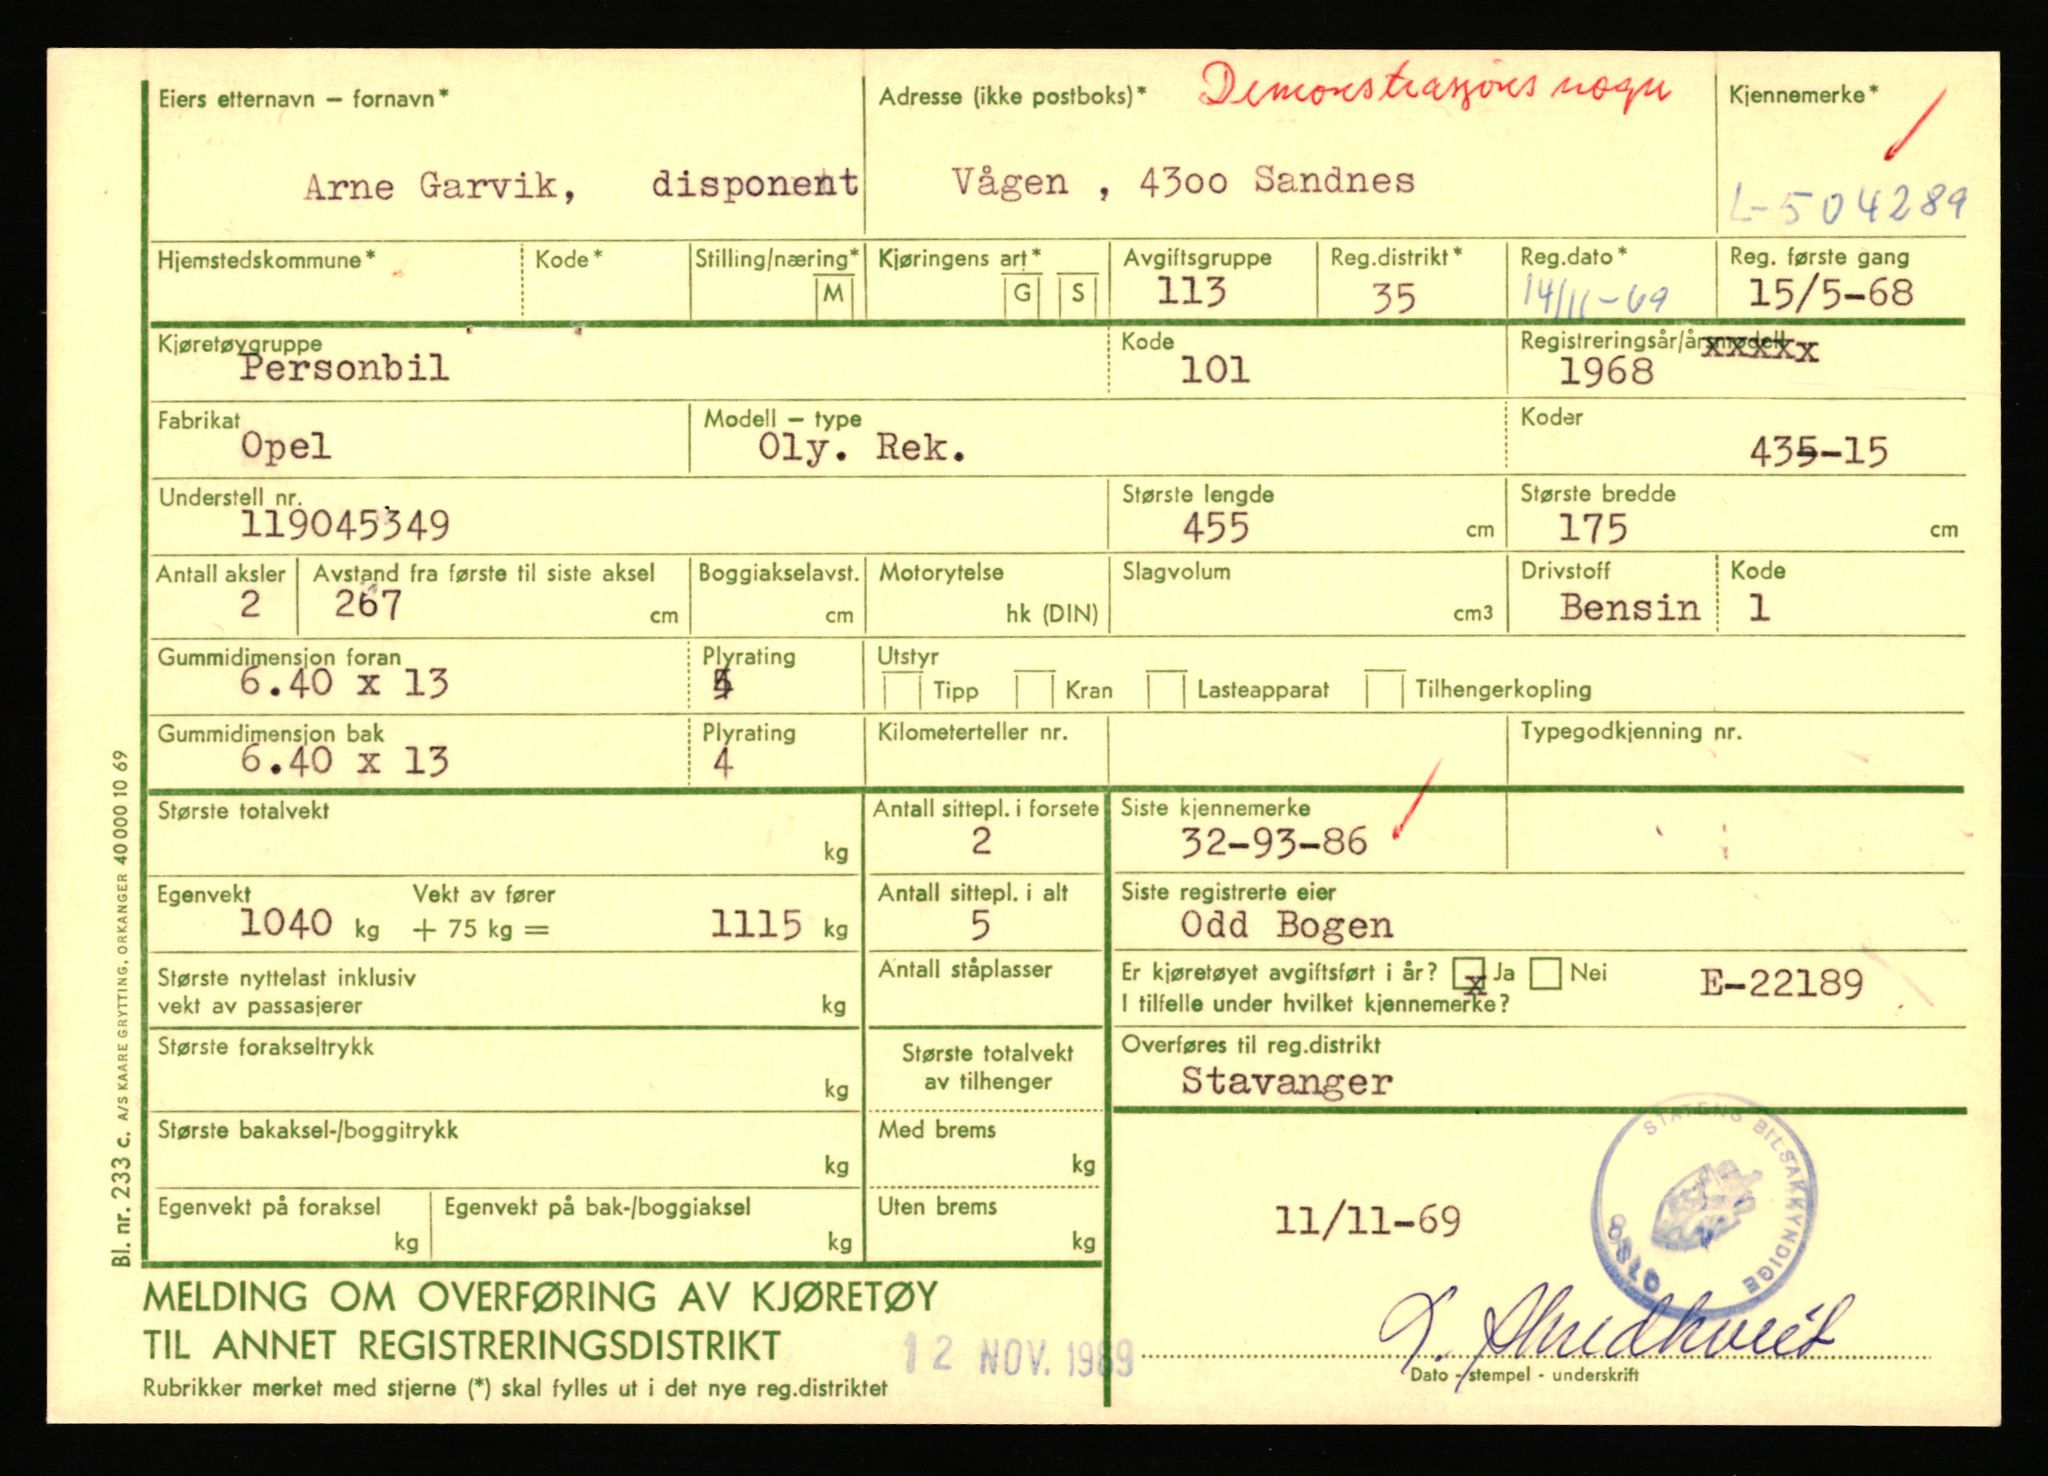 Eiers etternavn – fornavn*
Adresse (ikke postboks)*
Demonstrasjons vogn
Kjennemerke*
Arne Garvik, disponent
Vågen , 4300 Sandnes
L-504289
Hjemstedskommune*
Kode*
Stilling/næring*
M
Kjøringens art*
G
S
Avgiftsgruppe
113
Reg.distrikt*
35
Reg.dato*
14/11-69
Reg. første gang
15/5-68
Kjøretøygruppe
Personbil
Kode
101
Registreringsår/årsmodell
xxxxx
1968
Fabrikat
Opel
Modell – type
Oly. Rek.
Koder
435-15
Understell nr.
119045349
Største lengde
455 cm
Største bredde
175 cm
Antall aksler
2
Avstand fra første til siste aksel
267 cm
Boggiakselavst.
cm
Motorytelse
hk (DIN)
Slagvolum
cm3
Drivstoff
Bensin
Kode
1
Gummidimensjon foran
6.40 x 13
Plyrating
Utstyr
Tipp
Kran
Lasteapparat
Tilhengerkopling
Gummidimensjon bak
6.40 x 13
Plyrating
4
Kilometerteller nr.
Typegodkjenning nr.
Største totalvekt
kg
Antall sittepl. i forsete
2
Siste kjennemerke
32-93-86
Egenvekt
1040 kg
Vekt av fører
+ 75 kg =
1115 kg
Antall sittepl. i alt
5
Siste registrerte eier
Odd Bogen
Største nyttelast inklusiv
vekt av passasjerer
kg
Antall ståplasser
Er kjøretøyet avgiftsført i år? x Ja Nei
I tilfelle under hvilket kjennemerke?
E-22189
Største forakseltrykk
kg
Største totalvekt
av tilhenger
Overføres til reg.distrikt
Stavanger
Største bakaksel-/boggitrykk
kg
Med brems
kg
Egenvekt på foraksel
kg
Egenvekt på bak-/boggiaksel
kg
Uten brems
kg
11/11-69
STATENS BILSAKKYNDIGE
OSLO
MELDING OM OVERFØRING AV KJØRETØY
TIL ANNET REGISTRERINGSDISTRIKT
12 NOV. 1969
Rubrikker merket med stjerne (*) skal fylles ut i det nye reg.distriktet
Dato - stempel - underskrift
Bl. nr. 233 c. A/S KAARE GRYTTING, ORKANGER 40 000 10 69